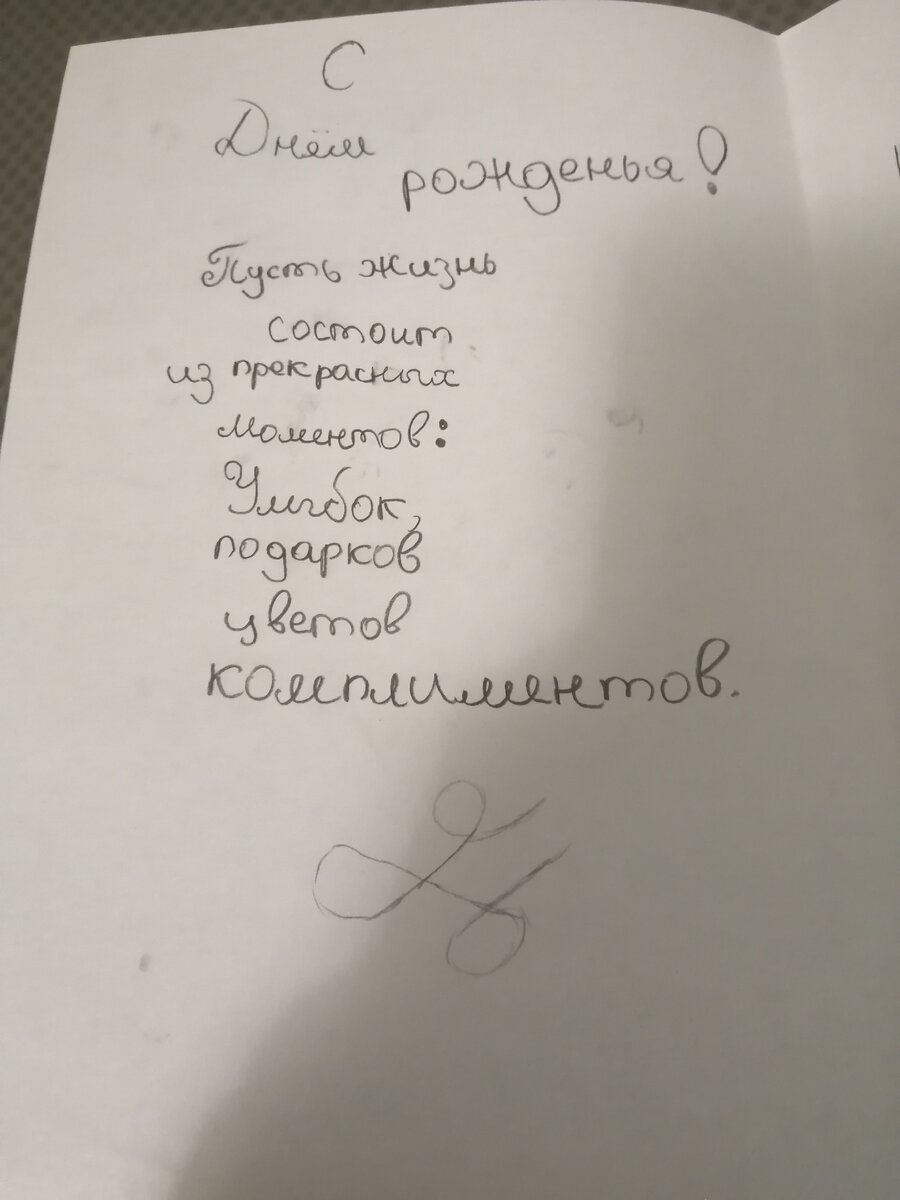 С
Днём
рожденья!
Пусть жизнь
состоит
из прекрасных
моментов:
Улыбок,
подарков
цветов
комплиментов.